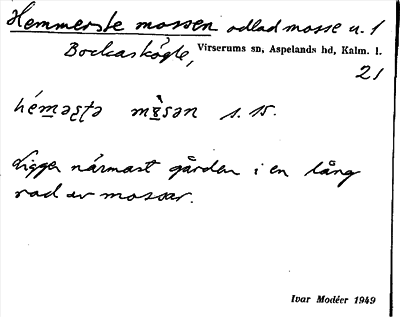 Hemmerste mossen odlad mosse u. 1
Bockaskögle, Virserums sn, Aspelands hd, Kalm. l.
21
s. 15.
Ligger närmast gården i en lång
rad av mossar.
Ivar Modéer 1949